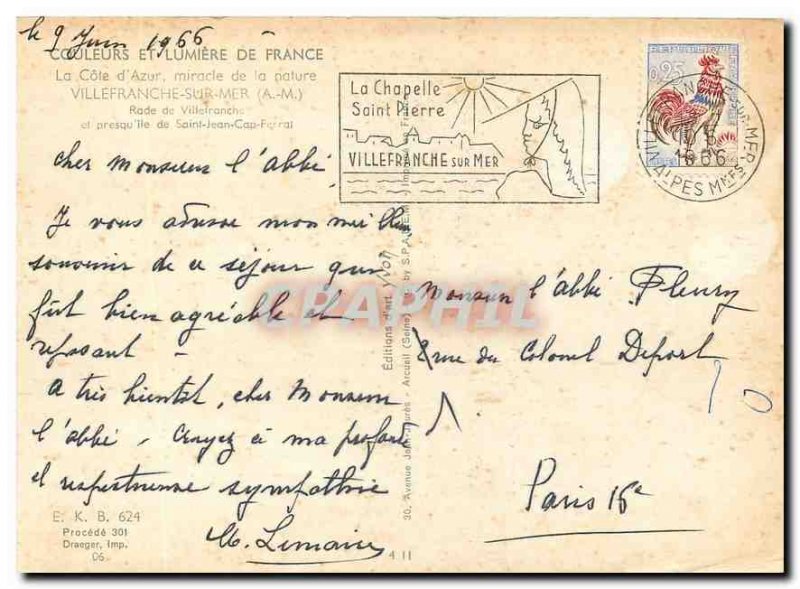 le 9 Juin 1966
COULEURS ET LUMIÈRE DE FRANCE
La Côte d'Azur, miracle de la nature
VILLEFRANCHE-SUR-MER (A.-M.)
Rade de Villefranche
et presqu'île de Saint-Jean-Cap-Ferrat
La Chapelle
Saint Pierre
VILLEFRANCHE SUR MER
0,25
1966
ALPES MMES
Cher Monsieur l'abbé
Je vous adresse mon meilleur
souvenir de ce séjour qui
fût bien agréable et
reposant -
A très bientôt, cher Monsieur
l'abbé, Croyez à ma profonde
et respectueuse sympathie
M. Lemaire
E. K. B. 624
Procédé 301
Draeger, Imp.
06
Éditions d'art Yvon
30, Avenue Jean-Jaurès - Arcueil (Seine)
by S.P.A.D.E.M.
4 11
CPAPHIL
Monsieur l'abbé Fleury
8 rue du Colonel Deport
Paris 16e